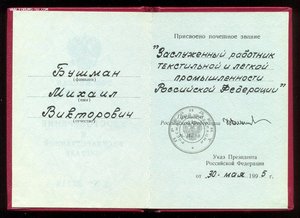 Бушман
(фамилия)
Михаил
(имя)
Викторович
(отчество)
Присвоено почетное звание
"Заслуженный работник
текстильной и легкой
промышленности
Российской Федерации"
Российской Федерации
Указ Президента
Российской Федерации
от 30 мая 1995 г.